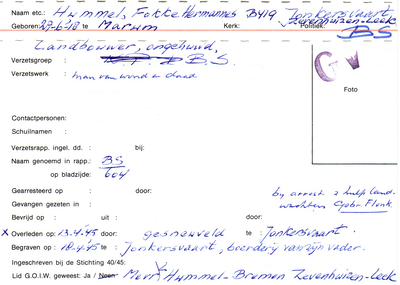 Naam etc.: Hummel, Fokke Hermannes B419 Jonkersvaart
Zevenhuizen-Leek
Geboren: 27-6-18 te Marum Kerk: Politiek:
BS
Landbouwer, ongehuwd,
Verzetsgroep : B.S.
Verzetswerk : man van woord en daad
GW
Foto
Contactpersonen:
Schuilnamen :
Verzetsrapp. ingel. dd. : bij:
Naam genoemd in rapp.: BS
op bladzijde: 604
Gearresteerd op : door: by arrest. 2 hulp land-
Gevangen gezeten in : wachters Gebr. Flink.
Bevrijd op : uit : door:
X Overleden op : 13-4-'45 door: gesneuveld te : Jonkersvaart.
Begraven op : 18-4-'45 te : Jonkersvaart, boerderij van zijn vader.
Ingeschreven bij de Stichting 40/45:
Lid G.O.I.W. geweest: Ja / Neen Mevr. Hummel-Bremen Zevenhuizen-Leek